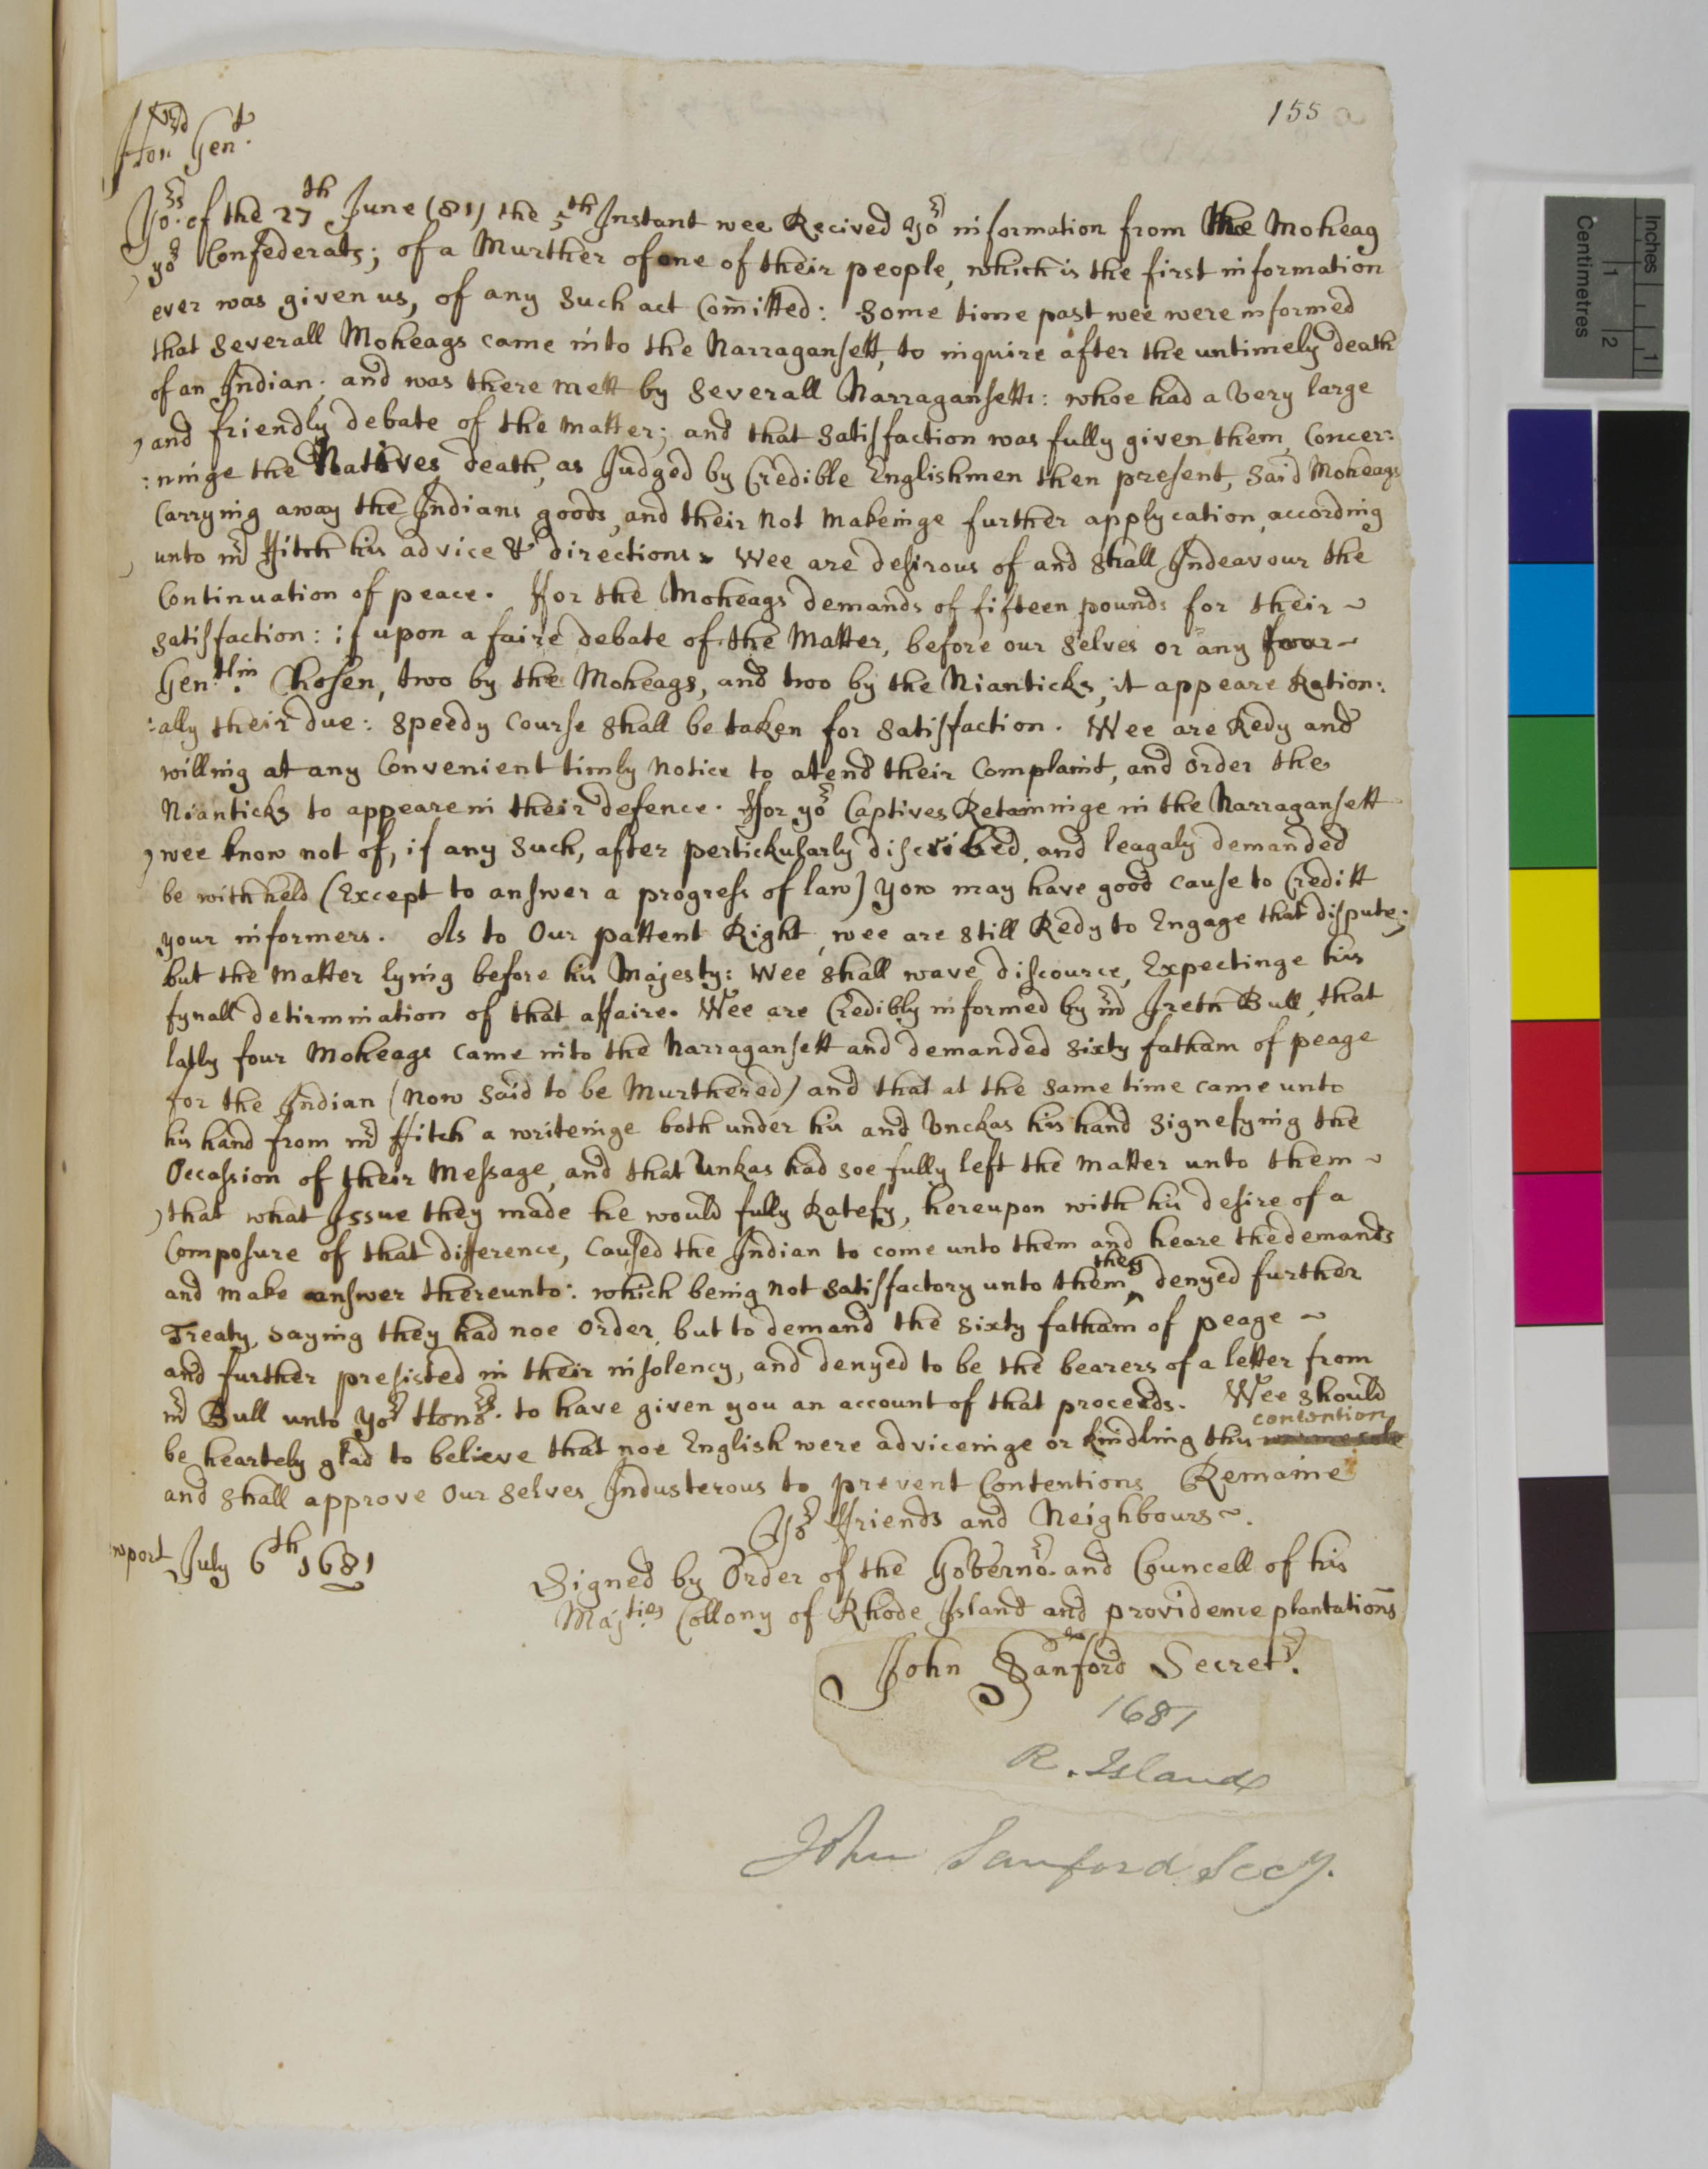 155 a
Honrd Gent.
Yors of the 27th June (81) the 5th Instant wee Recived yor information from the Moheag
yor Confederats; of a Murther of one of their people, which is the first information
ever was given us, of any Such act Com̄itted: Some time past wee were informed
that Severall Moheags came into the Narragansett, to inquire after the untimely death
of an Indian; and was there mett by Severall Narragansetts: whoe had a very large
and friendly debate of the Matter; and that Satisfaction was fully given them, Concer:
:ninge the Natives death, as Judged by Credible Englishmen then present, Said Moheags
Carrying away the Indians goods, and their Not Makeinge further applycation, according
unto mr ffitch his advice & directions. Wee are desirous of and Shall Indeavour the
Continuation of peace. ffor the Moheags demands of fifteen pounds for their
Satisfaction: if upon a faire debate of the Matter, before our Selves or any four
Gentlm. Chosen, two by the Moheags, and two by the Nianticks, it appeare Ration:
:ally their due: Speedy Course Shall be taken for Satisfaction. Wee are Redy and
willing at any Convenient timly Notice to atend their Complaint, and Order the
Nianticks to appeare in their defence. ffor yor Captives Retaininge in the Narragansett
wee know not of, if any Such, after pertickularly discribed, and leagaly demanded
be with held (Except to answer a progress of law) yow may have good cause to Creditt
your informers. As to Our pattent Right, wee are Still Redy to Engage that dispute;
but the Matter lying before his Majesty: Wee Shall wave discource, Expectinge his
fynall detirmination of that affaire. Wee are Credibly informed by mr Jreth Bull, that
latly four Moheags Came into the Narragansett and demanded Sixty fatham of peage
for the Indian (Now Said to be Murthered) and that at the Same time came unto
his hand from mr ffitch a writeinge both under his and Vnckas his hand Signefying the
Occassion of their Message, and that Unkas had soe fully left the Matter unto them
that what Issue they made he would fully Ratefy, hereupon with his desire of a
Composure of that difference, Caused the Indian to come unto them and heare the demands
and make answer thereunto: which being Not Satisfactory unto them ^ they denyed further
Treaty, Saying they had noe Order, but to demand the Sixty fatham of peage
and further presisted in their insolency, and denyed to be the bearers of a letter from
mr Bull unto yor Honrs. to have given you an account of that proceeds. Wee Should
be heartely glad to believe that noe English were adviceinge or kindling this contention
and Shall approve Our Selves Industerous to prevent Contentions Remaine
Yor ffriends and Neighbours.
wport July 6th 1681
Signed by Order of the Governor. and Councell of his
Majties Collony of Rhode Island and providence plantations
John Sanford Secretr.
1681
R. Island
John Sanford Secy.
Inches
Centimetres
1
2
1